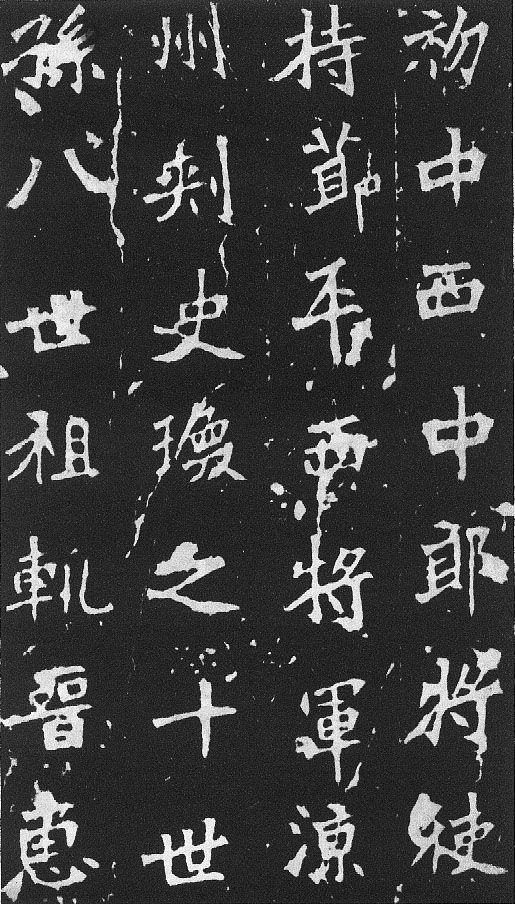 初中西中郎将使
持節平西将軍涼
州刾史瓊之十世
孫八世祖軌晉惠